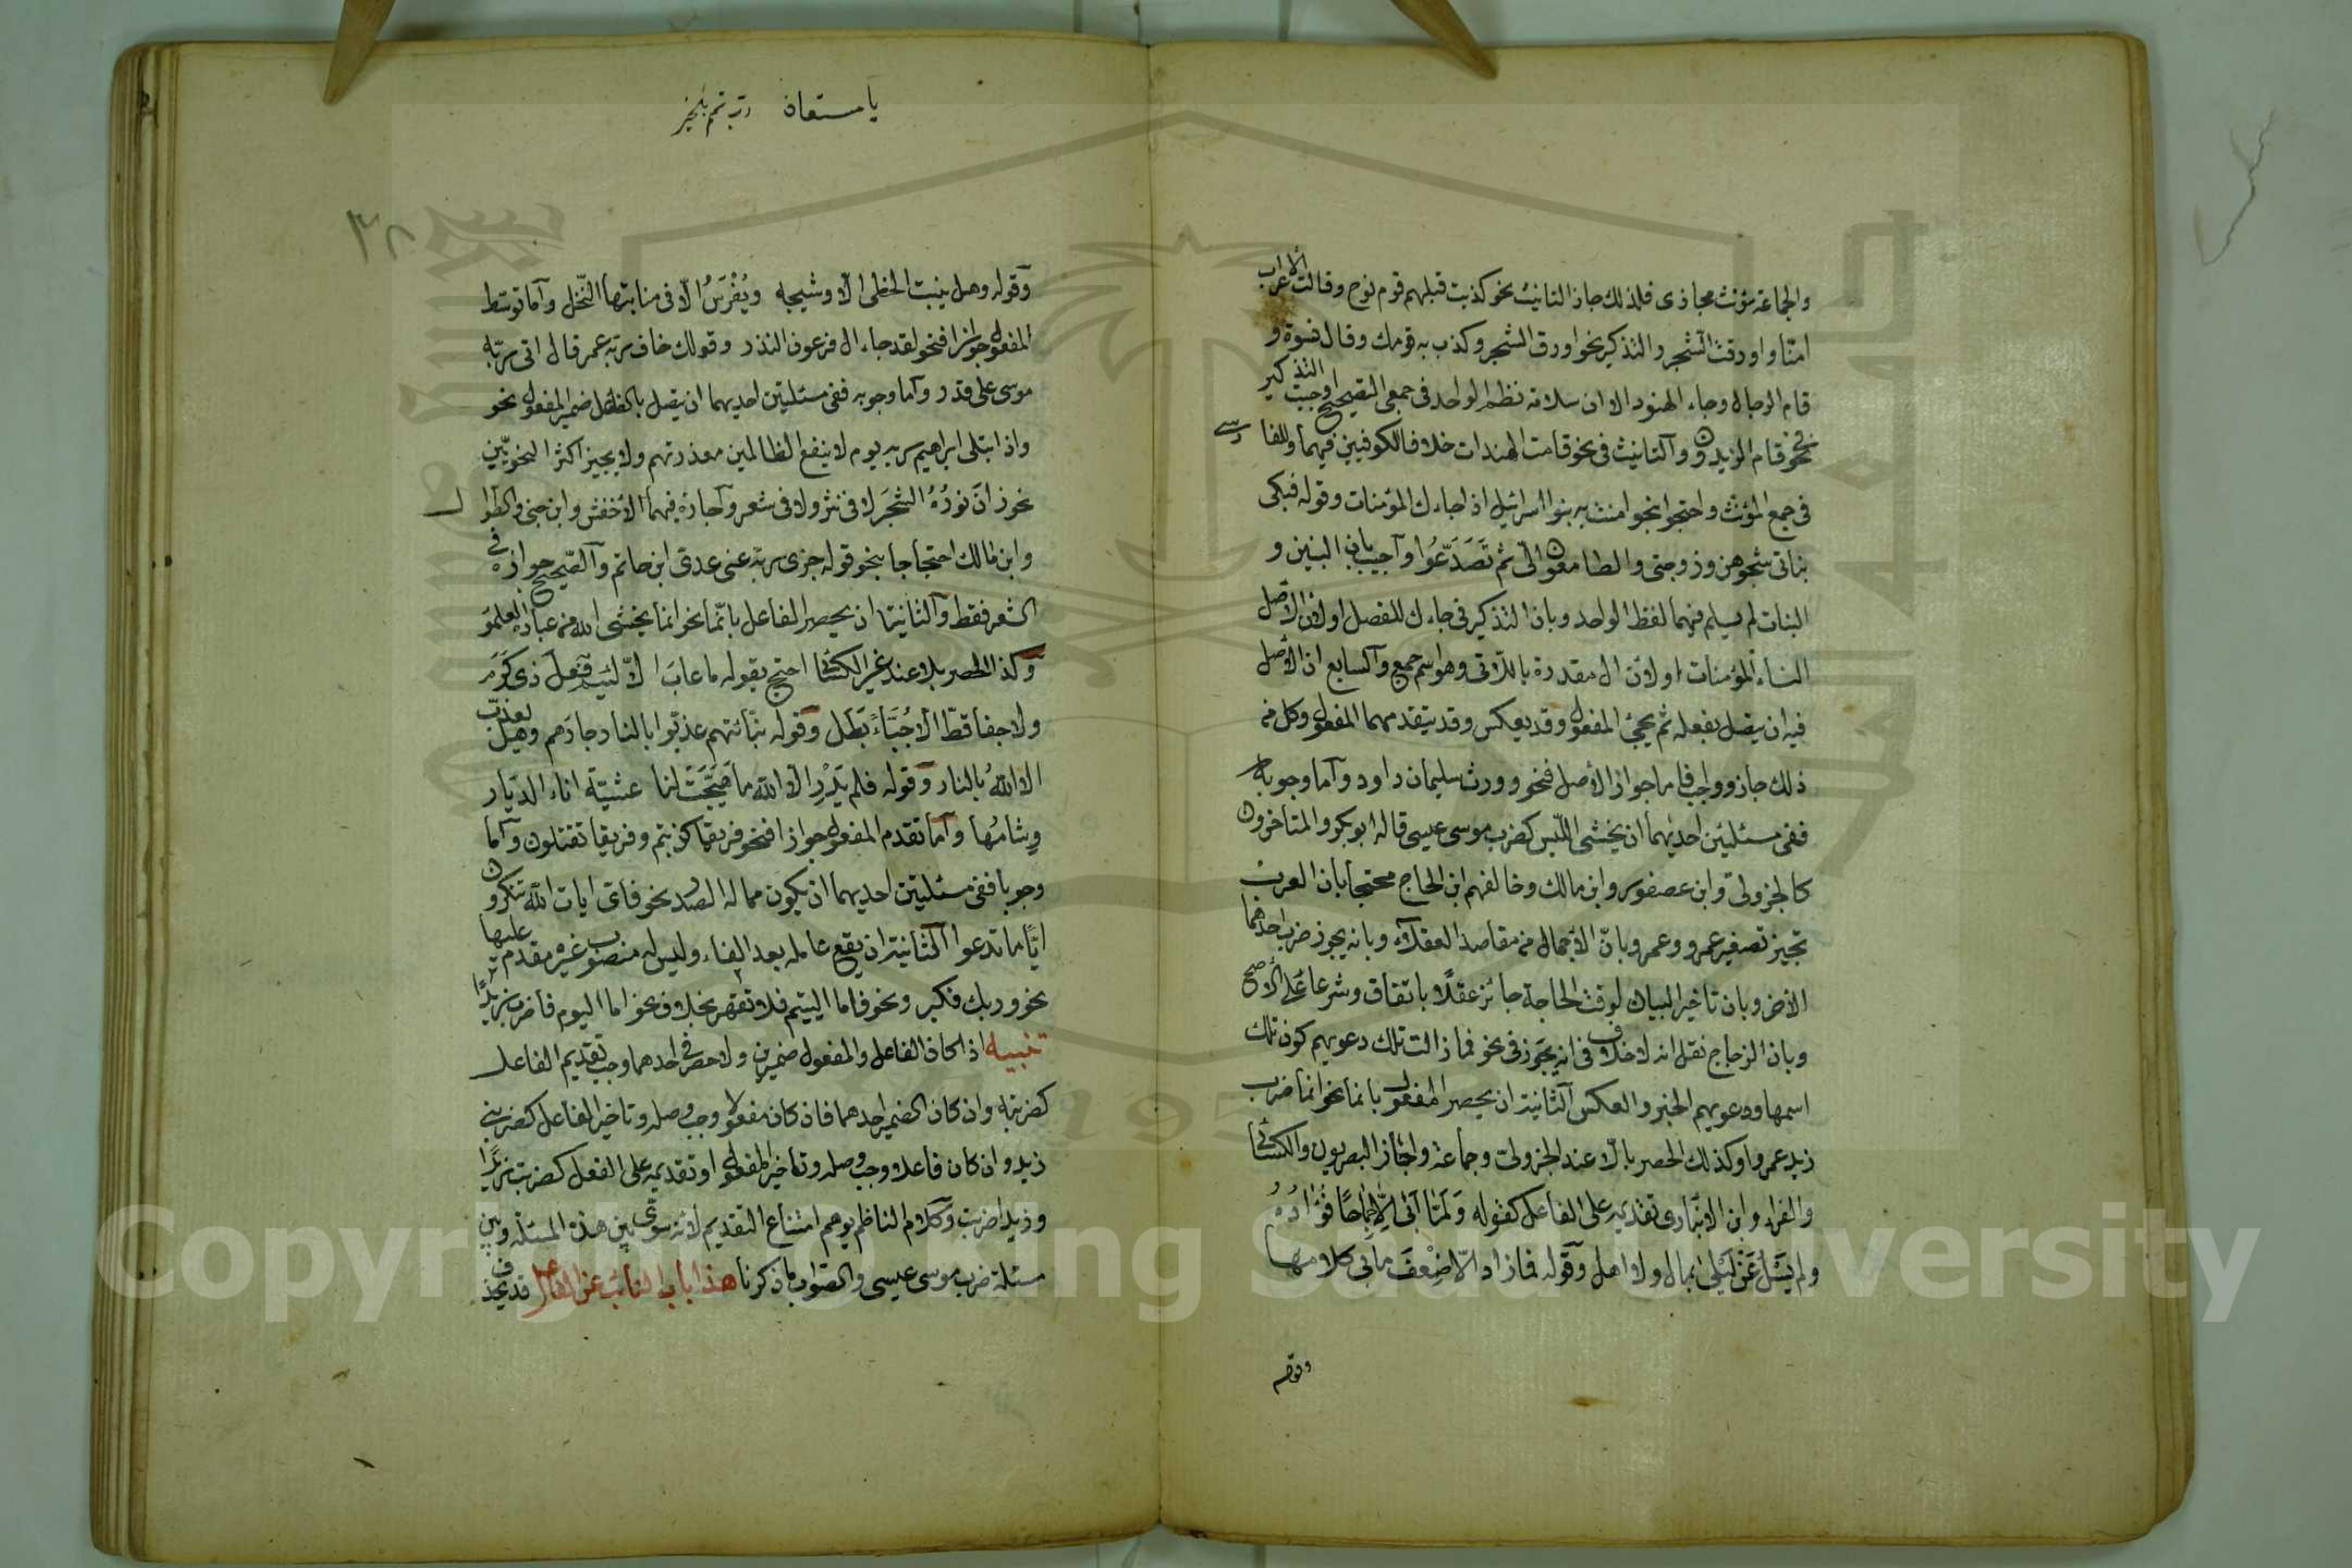 والجماعة مؤنث مجازى فلذلك جاز التانيث نحو كذبت قبلهم قوم نوح وقالت الاعراب
امنّا واورقت الشجر والتذكير نحو اورق الشجر وكذب به قومك وقال نسوة و
قام الرجال وجاء الهنود الا ان سلامة نظم الواحد فى جمعى التصحيح اوجبت التذكير
فى نحو قام الزيدون والتانيث فى نحو قامت الهندات خلافا للكوفيين فيهما وللفارسے
فى جمع المؤنث واحتجوا بنحو امنت به بنوا اسرائيل اذا جاءك المؤمنات وقوله فبكى
بناتى شجوهن وزوجتى والطامعون الىّ ثم تَصَدَّعُوا وأجيب بان البنين و
البنات لم يسلم فيهما لفظ الواحد وبان التذكير فى جاءك للفصل او لان الاصل
النساء المؤمنات او لان ال مقدرة باللّاتى وهو اسم جمع والسابع ان الاصل
فيه ان يتصل بفعله ثم يجئ المفعول وقد يعكس وقد يتقدمهما المفعول وكل من
ذلك جائز وواجب فاما جواز الاصل فنحو وورث سليمان داود وأما وجوبه
ففى مسئلتين احديهما ان يخشى اللّبس كضرب موسى عيسى قاله ابو بكر والمتاخرون
كالجزولى وابن عصفور وابن مالك وخالفهم ابن الحاج محتجا بان العرب
تجيز تصغير عمر وعمرو وبانّ الاجمال من مقاصد العقلاء وبانه يجوز ضرب احدهما
الاخر وبان تاخير البيان لوقت الحاجة جائز عقلًا باتفاق وشرعا على الاصح
وبان الزجاج نقل انه لا خلاف فى انه يجوز فى نحو فما زالت تلك دعويهم كون تلك
اسمها ودعويهم الخبر والعكس الثانية ان يحصر المفعول بانما نحو انما ضرب
زيد عمروا وكذلك الحصر بالّا عند الجزولى وجماعة واجاز البصريون والكسائى
والفراء وابن الانبارى تقديمه على الفاعل كقوله وَلَمّا اَبَى اِلّا جِمَاحًا فُؤَادُهُ
ولم يَسْلُ عَنْ لَيْلَى بمال ولا اهل وقوله فما زاد الّا ضِعْفَ مابى كلامها
وقوله
يا مستعان رب تمم بالخير
٣٨
وقوله وهل ينبت الخطى الّا وشيجه ويُغْرَسُ الّا فى منابتها النّخل وأما توسّط
المفعول جوازا فنحو لقد جاء ال فرعون النذر وقولك خاف ربه عمر قال اتى ربّه
موسى على قدر وأما وجوبه ففى مسئلتين احديهما ان يتصل بالفاعل ضمير المفعول نحو
واذ ابتلى ابراهيم ربه يوم لا ينفع الظالمين معذرتهم ولا يجيز اكثر النحويّين
نحو زانَ نَورُهُ الشجَرَ لا فى نثر ولا فى شعر وأجازه فيهما الأخفش وابن جنى والطوال
وابن مالك احتجاجا بنحو قوله جزى ربّه عنى عدى ابن حاتم والصّحيح جوازه فى
الشعر فقط والثانية ان يحصر الفاعل بانّما نحو انما يخشى الله من عباده العلمؤ
وكذا الحصر بالا عند غير الكسائى احتج بقوله ما عابَ الّا لئيم فعلَ ذى كَرَمَ
ولا جفا قطّ الّا جُبَّاءُ بَطَل وقوله نبّاتهم عذبوا بالنار جارَهم وهل يعذب
الا اللهُ بالنار وقوله فلم يَدْرِ الّا الله ما هَيَّجَتْ لنا عشيّةَ اناء الديار
وشامُها وأما تقدم المفعول جوازا فنحو فريقا كذبتم وفريقا تقتلون وأما
وجوبا ففى مسئلتين احديهما ان يكون مما له الصدر نحو فاى ايات الله تنكرون
ايّاما تدعوا الثانية ان يقع عامله بعد الفاء وليس له منصوب غيره مقدم عليها
نحو وربك فكبر ونحو فاما اليتيم فلا تقهر بخلاف نحو اما اليوم فاضرب زيدًا
تنبيه اذا كان الفاعل والمفعول ضميرين ولا حصر فى احدهما وجب تقديم الفاعل
كضربته وان كان الضمير احدهما فان كان مفعولا وجب وصله وتاخير الفاعل كضربنى
زيد وان كان فاعلا وجب وصله وتاخير المفعول او تقديمه على الفعل كضربت زيدًا
وزيدا ضربت وكلام الناظم يوهم امتناع التقديم لانّه سوّى بين هذه المسئلة وبين
مسئلة ضرب موسى عيسى والصّواب ما ذكرنا هذا باب النائب عن الفاعل قد يحذف
Copyright © King Saud University
195